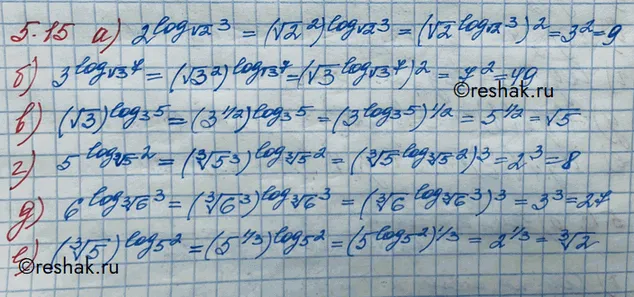 5.15 а) 2^{log_{√2} 3} = (√2²)^{log_{√2} 3} = (√2^{log_{√2} 3})² = 3² = 9
б) 3^{log_{√3} 7} = (√3²)^{log_{√3} 7} = (√3^{log_{√3} 7})² = 7² = 49
в) (√3)^{log_3 5} = (3^{1/2})^{log_3 5} = (3^{log_3 5})^{1/2} = 5^{1/2} = √5
г) 5^{log_{∛5} 2} = (∛5³)^{log_{∛5} 2} = (∛5^{log_{∛5} 2})³ = 2³ = 8
д) 6^{log_{∛6} 3} = (∛6³)^{log_{∛6} 3} = (∛6^{log_{∛6} 3})³ = 3³ = 27
©reshak.ru
е) (∛5)^{log_5 2} = (5^{1/3})^{log_5 2} = (5^{log_5 2})^{1/3} = 2^{1/3} = ∛2
©reshak.ru